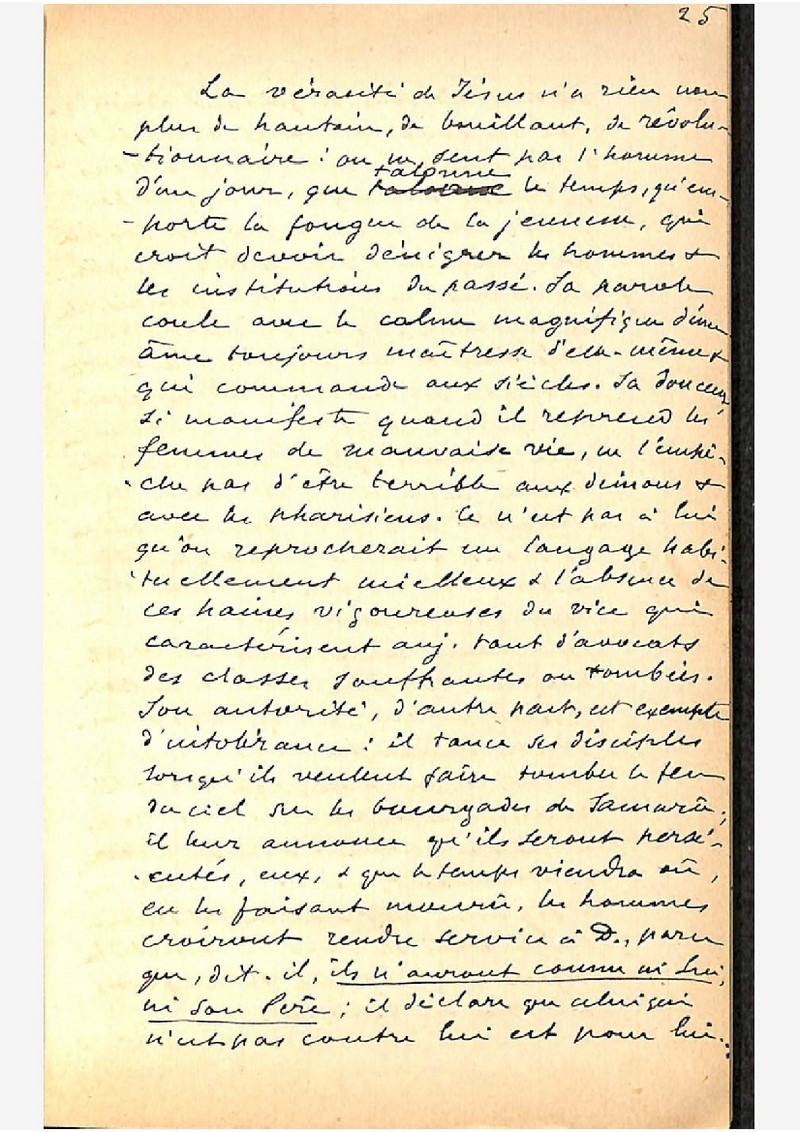 25
La véracité de Jésus n'a rien non
plus de hautain, de bouillant, de révolu-
-tionnaire : on ne sent pas l'homme
talonne
d'un jour, que le temps, qu'em-
-porte la fougue de la jeunesse, qui
croit devoir dénigrer les hommes &
les institutions du passé. Sa parole
coule avec le calme magnifique d'une
âme toujours maîtresse d'elle-même &
qui commande aux siècles. Sa douceur
si manifeste quand il reprend les
femmes de mauvaise vie, ne l'empê-
-che pas d'être terrible aux démons &
avec les pharisiens. Ce n'est pas à lui
qu'on reprocherait un langage habi-
-tuellement mielleux & l'absence de
ces haines vigoureuses du vice qui
caractérisent auj. tant d'avocats
des classes souffrantes ou tombées.
Son autorité, d'autre part, est exempte
d'intolérance : il tance ses disciples
lorsqu'ils veulent faire tomber le feu
du ciel sur les bourgades de Samarie ;
il leur annonce qu'ils seront persé-
-cutés, eux, & que le temps viendra où,
en les faisant mourir, les hommes
croiront rendre service à D., parce
que, dit-il, ils n'auront connu ni Lui,
ni son Père ; il déclare que celui qui
n'est pas contre lui est pour lui.